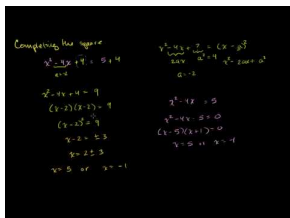 Completing the square
x² - 4x + 4 = 5 + 4
a = -2
x² - 4x + 4 = 9
(x-2)(x-2) = 9
(x-2)² = 9
x-2 = ± 3
x = 2 ± 3
x = 5 or x = -1
x² - 4x + ? = (x - a)²
2ax a² = 4 x² - 2ax + a²
a = -2
x² - 4x = 5
x² - 4x - 5 = 0
(x-5)(x+1) = 0